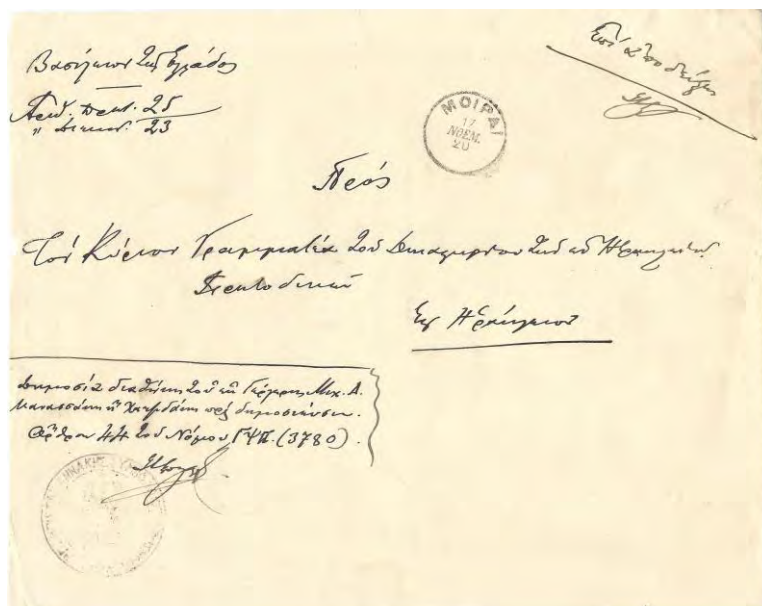 Βασίλειον της Ελλάδος
Αριθ. πρωτ. 25
" 23
Επί αποδείξει
ΜΟΙΡΑΙ
17
ΝΟΕΜ.
20
Πρός
Τόν Κύριον Γραμματέα τού Δικαστηρίου των εν Ηρακλείω
Πρωτοδικών
Εις Ηράκλειον
Δημοσία διαθήκη τού εκ Γέργερης Μιχ. Α.
πρός δημοσίευσιν.
Άρθρον 44 τού Νόμου ΓΨΠ. (3780).